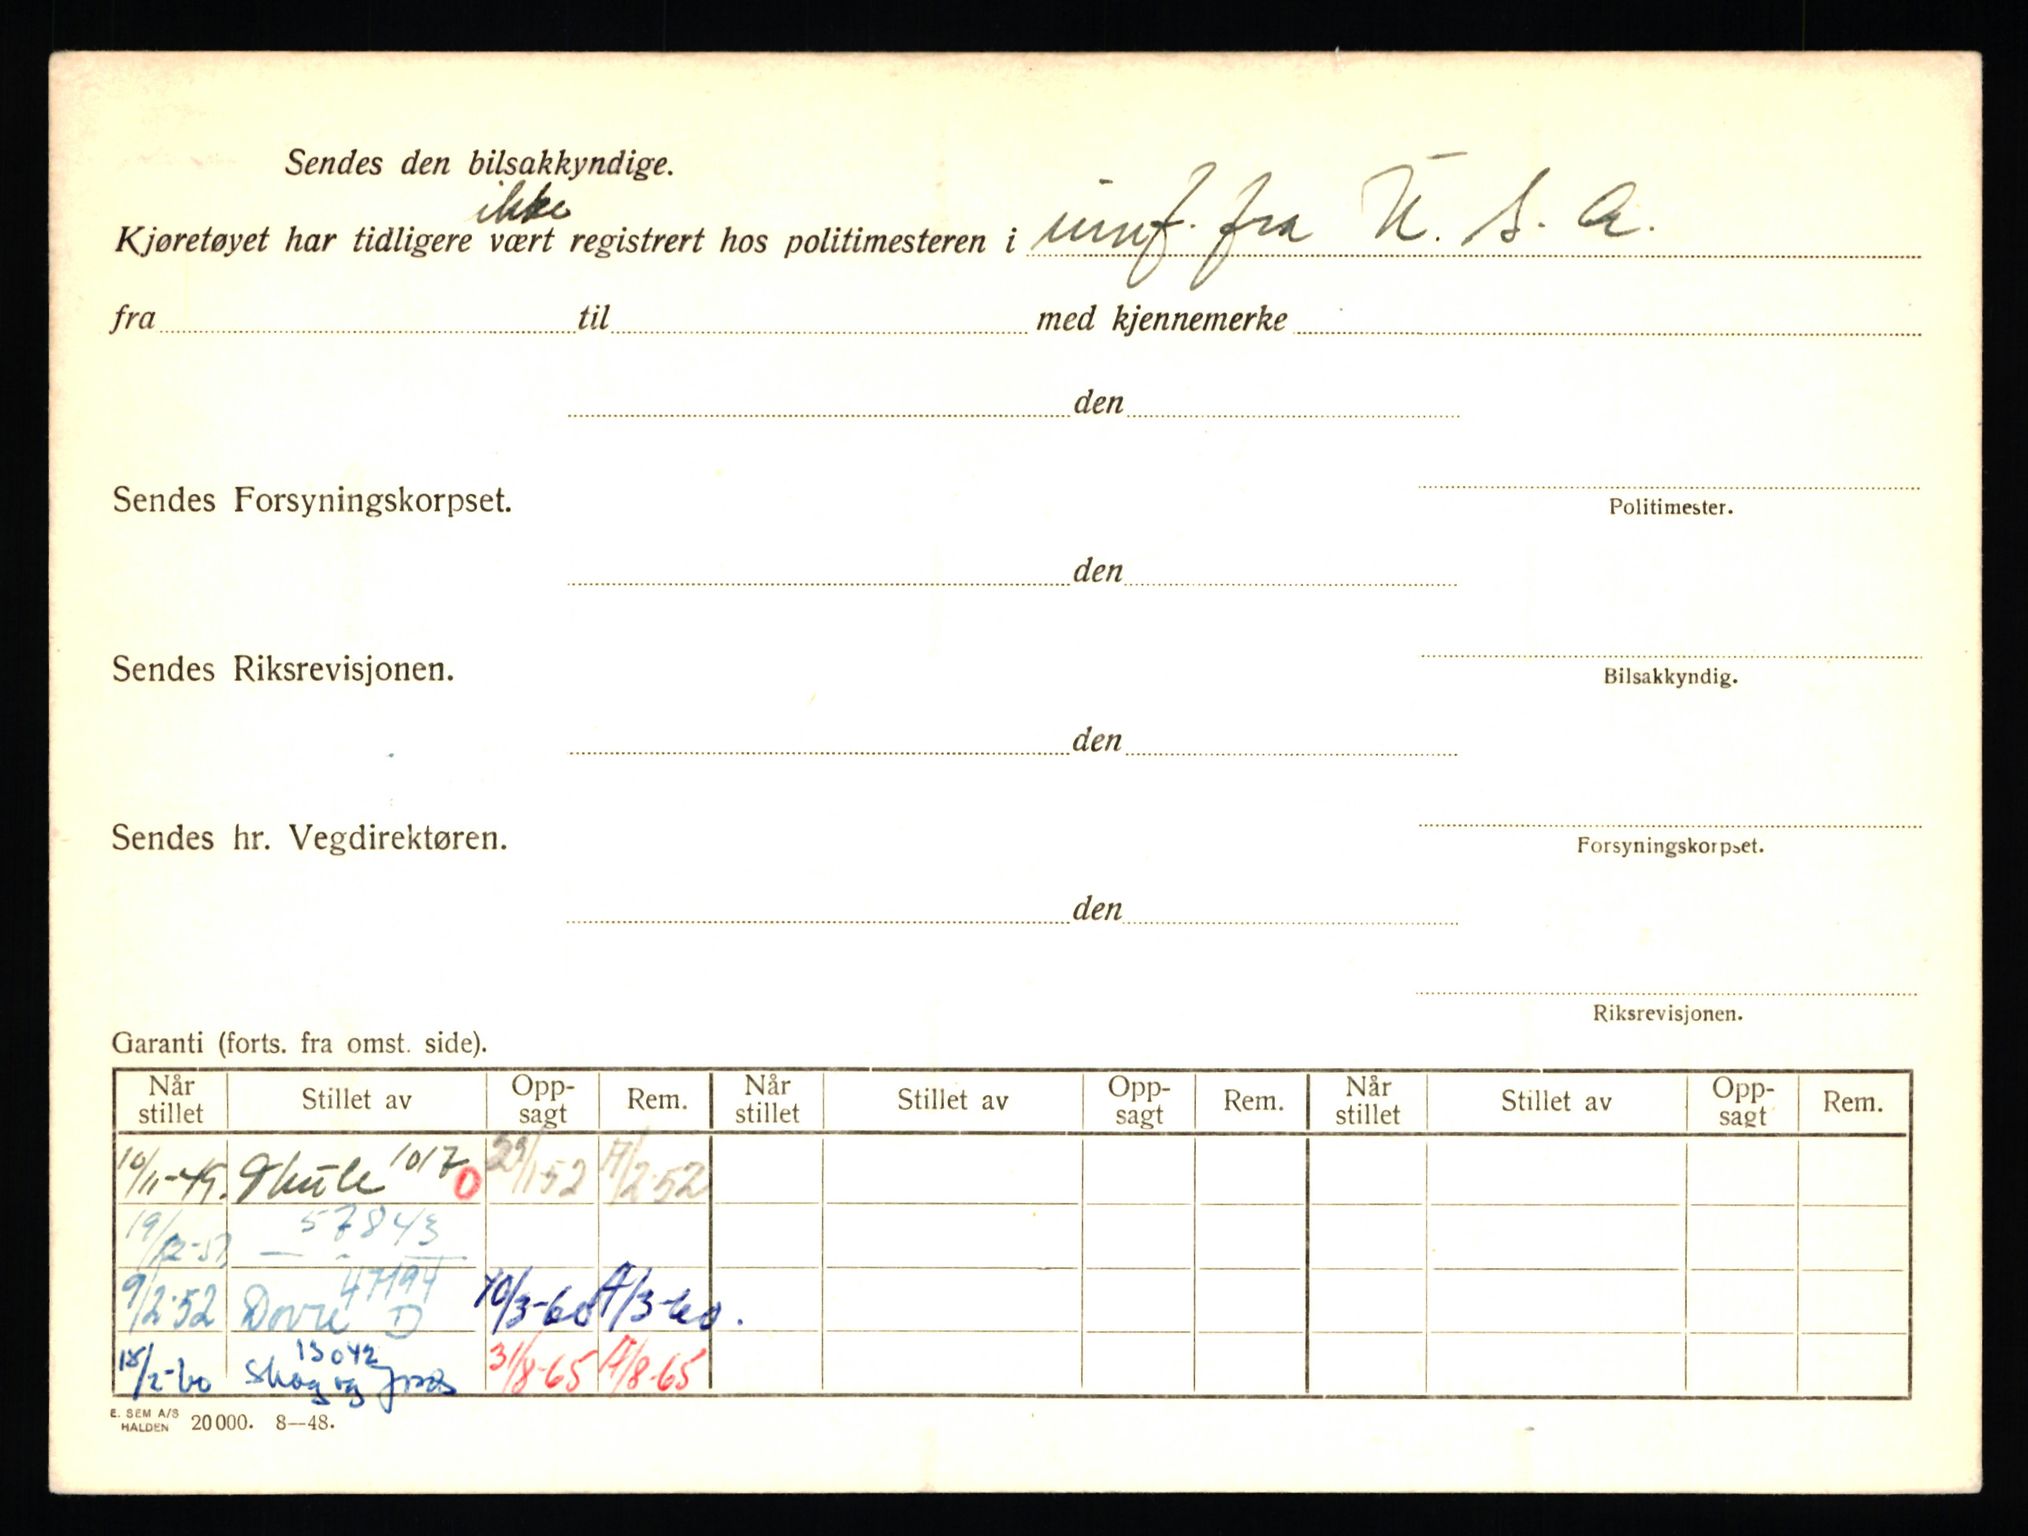 Sendes den bilsakkyndige.
ikke
Kjøretøyet har tidligere vært registrert hos politimesteren i imf. fra U. S. A.
fra til med kjennemerke
den
Sendes Forsyningskorpset.
Politimester.
den
Sendes Riksrevisjonen.
Bilsakkyndig.
den
Sendes hr. Vegdirektøren.
Forsyningskorpset.
den
Riksrevisjonen.
Garanti (forts. fra omst. side).
Når stillet Stillet av Opp-sagt Rem. Når stillet Stillet av Opp-sagt Rem. Når stillet Stillet av Opp-sagt Rem.
10/11-49. Thule 1017 0 29/1 52 /2-52
19/12-51 57843
47194
9/2-52 Dovre D 10/3-60 /3-60.
13042
18/2-60 Skog og 31/8-65 /8-65
E. SEM A/S
HALDEN 20000. 8—48.